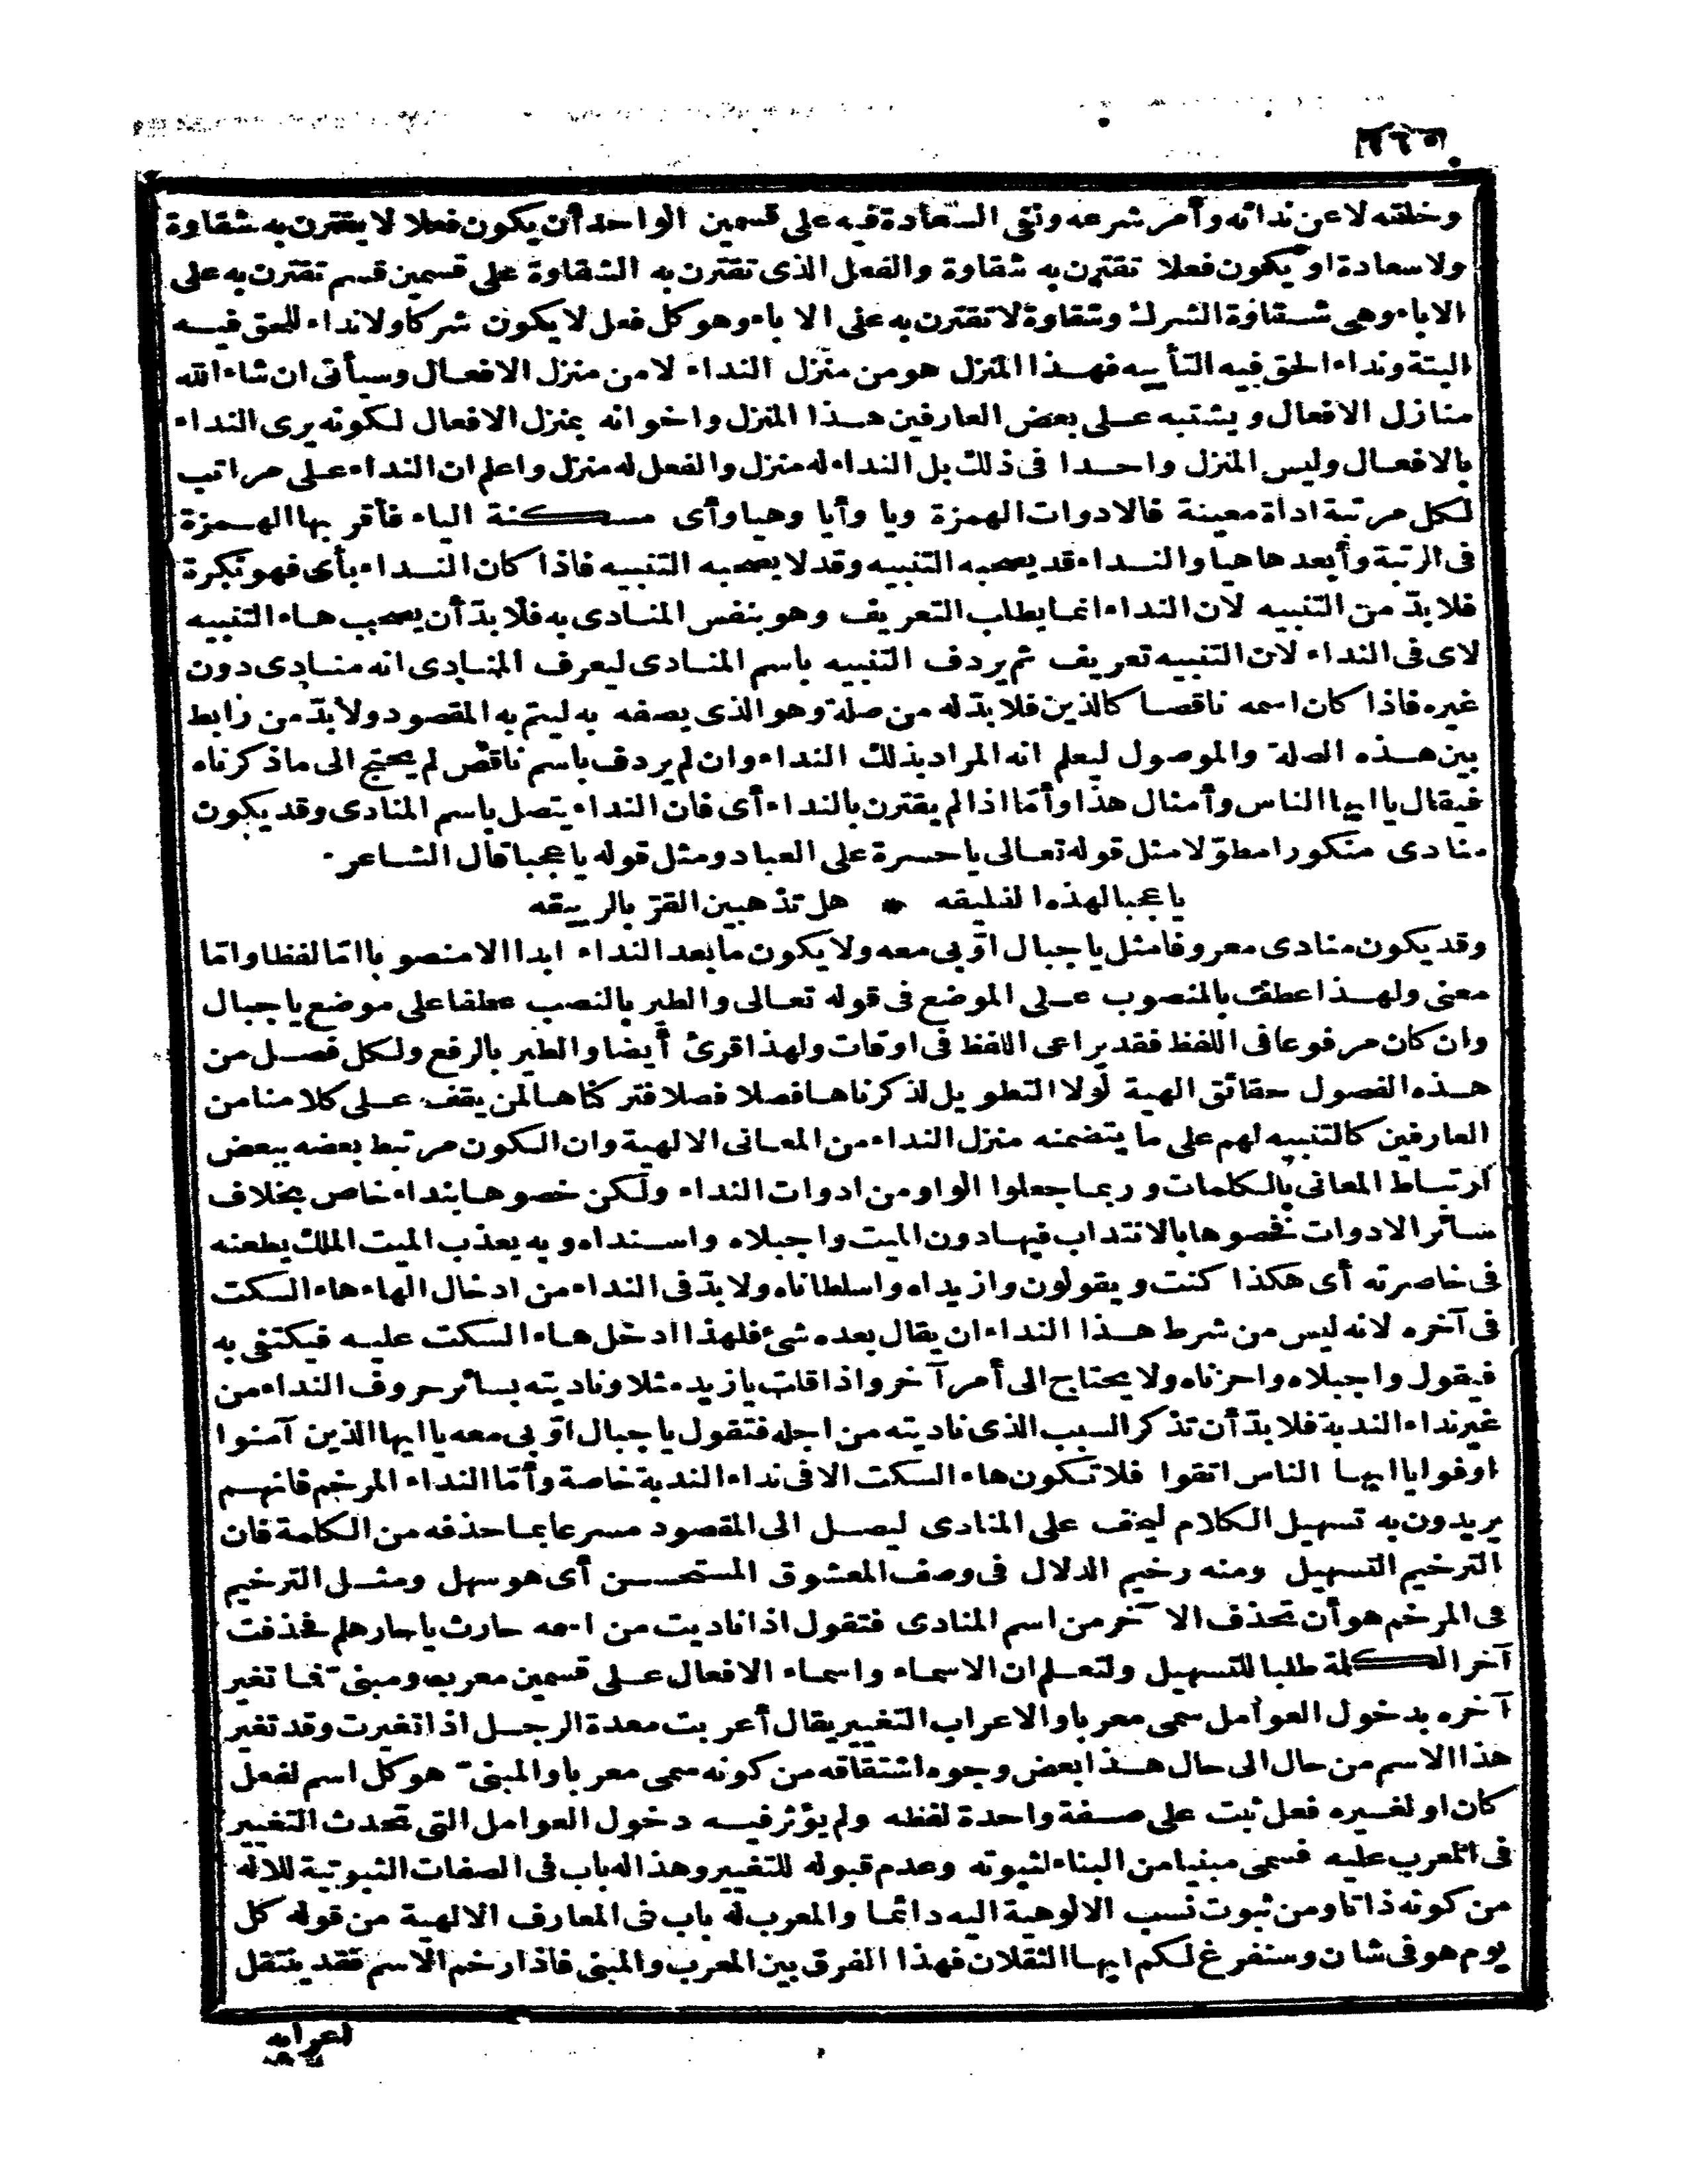 وخلقه لا عن ندائه وأمر شرعه ونفي السعادة فيه على قسمين الواحد أن يكون فعلا لا يقترن به شقاوة
ولا سعادة او يكون فعلا تقترن به شقاوة والفعل الذى تقترن به الشقاوة على قسمين قسم تقترن به على
الاباء وهى شقاوة الشرك وشقاوة لا تقترن به على الاباء وهو كل فعل لا يكون شركا ولا نداء للحق فيه
البتة ونداء الحق فيه التأييه فهذا المنزل هو من منزل النداء لا من منزل الافعال وسيأتى ان شاء الله
منازل الافعال ويشتبه على بعض العارفين هذا المنزل واخوانه بمنزل الافعال لكونه يرى النداء
بالافعال وليس المنزل واحدا فى ذلك بل النداء له منزل والفعل له منزل واعلم ان النداء على مراتب
لكل مرتبة اداة معينة فالادوات الهمزة ويا وأيا وهيا وأى مسكنة الياء فأقربها الهمزة
فى الرتبة وأبعدها هيا والنداء قد يصحبه التنبيه وقد لا يصحبه التنبيه فاذا كان النداء بأى فهو نكرة
فلا بدّ من التنبيه لان النداء انما يطلب التعريف وهو بنفس المنادى به فلا بدّ أن يصحب هاء التنبيه
لاى فى النداء لان التنبيه تعريف ثم يردف التنبيه باسم المنادى ليعرف المنادى انه منادى دون
غيره فاذا كان اسمه ناقصا كالذين فلا بدّ له من صلة وهو الذى يصفه به ليتم به المقصود ولا بدّ من رابط
بين هذه الصلة والموصول ليعلم انه المراد بذلك النداء وان لم يردف باسم ناقص لم يحتج الى ما ذكرناه
فيقال يا ايها الناس وأمثال هذا وأمّا اذا لم يقترن بالنداء أى فان النداء يتصل باسم المنادى وقد يكون
منادى منكورا مطوّلا مثل قوله تعالى يا حسرة على العباد ومثل قوله يا عجبا قال الشاعر
يا عجبا لهذه الفليقه * هل تذهبين القرّ بالريقه
وقد يكون منادى معروفا مثل يا جبال اوّبى معه ولا يكون ما بعد النداء ابدا الا منصوبا امّا لفظا وامّا
معنى ولهذا عطف بالمنصوب على الموضع فى قوله تعالى والطير بالنصب عطفا على موضع يا جبال
وان كان مرفوعا فى اللفظ فقد يراعى اللفظ فى اوقات ولهذا قرئ أيضا والطير بالرفع ولكل فصل من
هذه الفصول حقائق الهية لولا التطويل لذكرناها فصلا فصلا فتركناها لمن يقف على كلامنا من
العارفين كالتنبيه لهم على ما يتضمنه منزل النداء من المعانى الالهية وان الكون مرتبط بعضه ببعض
ارتباط المعانى بالكلمات وربما جعلوا الواو من ادوات النداء ولكن خصوها بنداء خاص بخلاف
سائر الادوات فخصوها بالانتداب فيها دون الميت واجبلاه واسنداه وبه يعذب الميت الملك يطعنه
فى خاصرته أى هكذا كنت ويقولون وازيداه واسلطاناه ولا بدّ فى النداء من ادخال الهاء هاء السكت
فى آخره لانه ليس من شرط هذا النداء ان يقال بعده شئ فلهذا ادخل هاء السكت عليه فيكتفى به
فيقول واجبلاه واحزناه ولا يحتاج الى أمر آخر واذا قلت يا زيد مثلا وناديته بسائر حروف النداء من
غير نداء الندبة فلا بدّ أن تذكر السبب الذى ناديته من اجله فتقول يا جبال اوّبى معه يا ايها الذين آمنوا
اوفوا يا ايها الناس اتقوا فلا تكون هاء السكت الا فى نداء الندبة خاصة وأمّا النداء المرخم فانهم
يريدون به تسهيل الكلام ليخف على المنادى ليصل الى المقصود مسرعا بما حذفه من الكلمة فان
الترخيم التسهيل ومنه رخيم الدلال فى وصف المعشوق المستحسن أى هو سهل ومثل الترخيم
فى المرخم هو أن تحذف الآخر من اسم المنادى فتقول اذا ناديت من اسمه حارث يا حار هلم فحذفت
آخر الكلمة طلبا للتسهيل ولتعلم ان الاسماء واسماء الافعال على قسمين معرب ومبنىّ فما تغير
آخره بدخول العوامل سمى معربا والاعراب التغيير يقال أعربت معدة الرجل اذا تغيرت وقد تغير
هذا الاسم من حال الى حال هذا بعض وجوه اشتقاقه من كونه سمى معربا والمبنىّ هو كل اسم لفعل
كان او لغيره فعل ثبت على صفة واحدة لفظه ولم يؤثر فيه دخول العوامل التى تحدث التغيير
فى المعرب عليه فسمى مبنيا من البناء لثبوته وعدم قبوله للتغيير وهذا له باب فى الصفات الثبوتية للاله
من كونه ذاتا ومن ثبوت نسب الالوهية اليه دائما والمعرب له باب فى المعارف الالهية من قوله كل
يوم هو فى شان وسنفرغ لكم ايها الثقلان فهذا الفرق بين المعرب والمبنى فاذا رخم الاسم فقد ينتقل
اعرابه